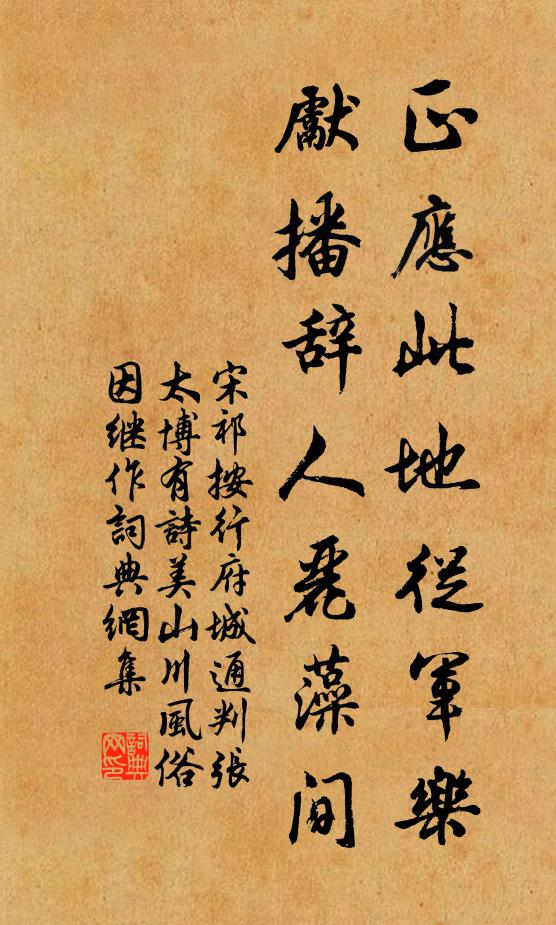 正應此地從軍樂
獻播辞人麗藻間
宋祁按行府城通判張
太博有詩美山川風俗
因继作詞典網集
詞典
网印